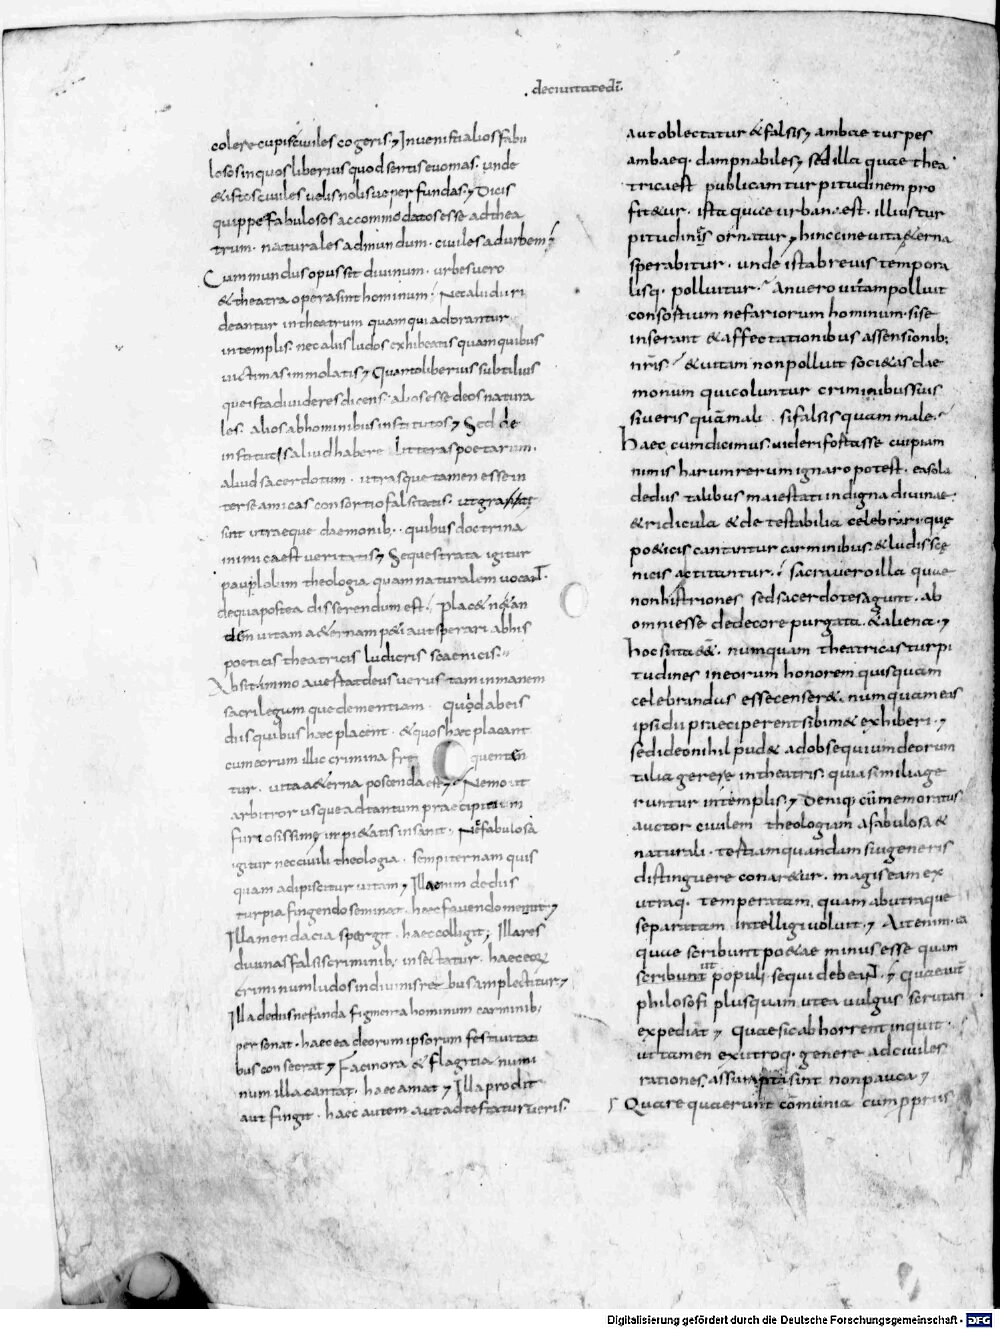 deciuitatedi͞
colere cupis ciuiles cogeris; Inuenisti alios fabu
losos in quos liberius quod sentis euomas. unde
& istos ciuiles uelis nolis ue perfundas; Dicis
quippe fabulosos accommodatos esse ad thea
trum. naturales ad mundum. ciuiles ad urbem;
Cum mundus opus sit diuinum. urbes uero
& theatra opera sint hominum; Nec alii di ri
deantur in theatrum quam qui adorantur
in templis. nec aliis ludos exhibeatis quam quibus
uictimas immolatis; Quanto liberius subtilius
que ista diuideres dicens. alios esse deos natura
les. alios ab hominibus institutos; Sed de
institutis aliud habere litteras poetarum.
aliud sacerdotum. utrasque tamen esse in
ter se amicas consortio falsitatis. ut gratae
sint utraeque daemonib; quibus doctrina
inimica est ueritatis; Sequestrata igitur
paulolum theologia quam naturalem uocant.
de qua postea disserendum est; plac& ne tan
dem uitam a&ernam p&i aut sperari ab his
poeticis theatricis ludicris scaenicis.
Absit immo auertat deus uerus tam inmanem
sacrilegum que dementiam. quid ab eis
diis quibus haec placent. & quos haec placant
cum eorum illic crimina fre quenten
tur. uita a&erna poscenda est; Nemo ut
arbitror usque ad tantum praecipitium
furiosissimę inpi&atis insanit. Nec fabulosa
igitur nec ciuili theologia. sempiternam quis
quam adipiscitur uitam; Illa enim de diis
turpia fingendo seminat. haec fauendo metit;
Illa mendacia spargit. haec colligit; Illa res
diuinas falsis criminib; insectatur. haec eorum
criminum ludos in diuinis rebus amplectitur;
Illa de diis nefanda figmenta hominum carminib;
personat. haec ea deorum ipsorum festiuitati
bus consecrat; Facinora & flagitia numi
num illa cantat. haec amat; Illa prodit
aut fingit. haec autem aut adtestatur ueris.
aut oblectatur & falsis; ambae turpes
ambaeq. dampnabiles; sed illa quae thea
trica est publicam turpitudinem pro
fit&ur. ista quae urbana est. illius tur
pitudinis ornatur; hinccine uita &erna
sperabitur. unde ista breuis tempora
lisq. polluitur. An uero uitam polluit
consortium nefariorum hominum. si se
inserant & affectationibus assensionib;
nr͞is. & uitam non polluit soci&as dae
monum qui coluntur criminibus suis
si ueris quam mali. si falsis quam male.
Haec cum dicimus. uideri fortasse cuipiam
nimis harum rerum ignaro potest. ea sola
de diis talibus maiestati indigna diuinae.
& ridicula & detestabilia celebrari. quę
po&icis cantantur carminibus. & ludis scę
nicis actitantur. sacra uero illa quae
non histriones sed sacerdotes agunt. ab
omni esse dedecore purgata. & aliena;
Hoc si ita ess&. numquam theatricas turpi
tudines in eorum honorem quisquam
celebrandas esse censer&. numquam eis
ipsi dii praeciperent sibim& exhiberi;
sed ideo nihil pud& ad obsequium deorum
talia gerere in theatris. quia similia ge
runtur in templis; Deniq. cu͞ memoratus
auctor ciuilem theologiam a fabulosa &
naturali. tertiam quandam sui generis
distinguere conar&ur. magis eam ex
utraq. temperatam. quam ab utraque
separatam intelligi uoluit; Ait enim. ea
quae scribunt po&ae minus esse quam
ut
scribunt populi sequi debeant; quae aut͞
philosofi plus quam ut ea uulgus scrutari
expediat; quae sic abhorrent inquit.
ut tamen ex utroq. genere ad ciuiles
rationes. assumpta sint non pauca;
Quare quae erunt co͞munia cum ppriis
Digitalisierung gefördert durch die Deutsche Forschungsgemeinschaft - DFG